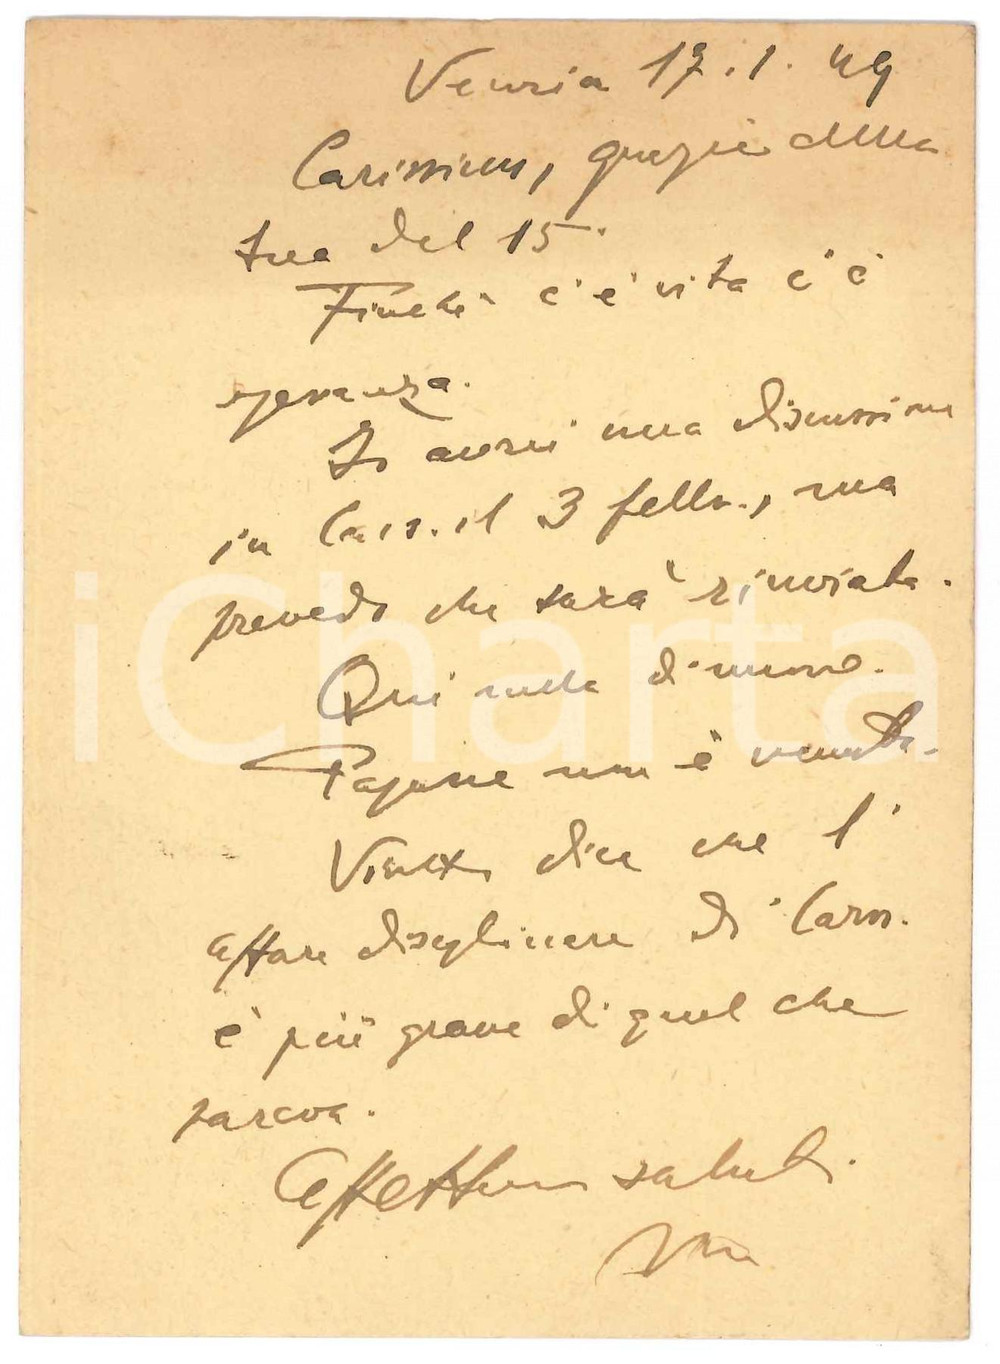 Venezia 17.1.49
Carissimo, grazie della
tua del 15.
Finché c'è vita c'è
speranza.
Io avrei una discussione
in Cass. il 3 febbr., ma
prevedo che sarà rinviata.
Qui nulla di nuovo.
Pagine non è venuto.
dice che l'
affare disciplinare di Carn.
è più grave di quel che
pareva.
Affettuosi saluti.
iCharta